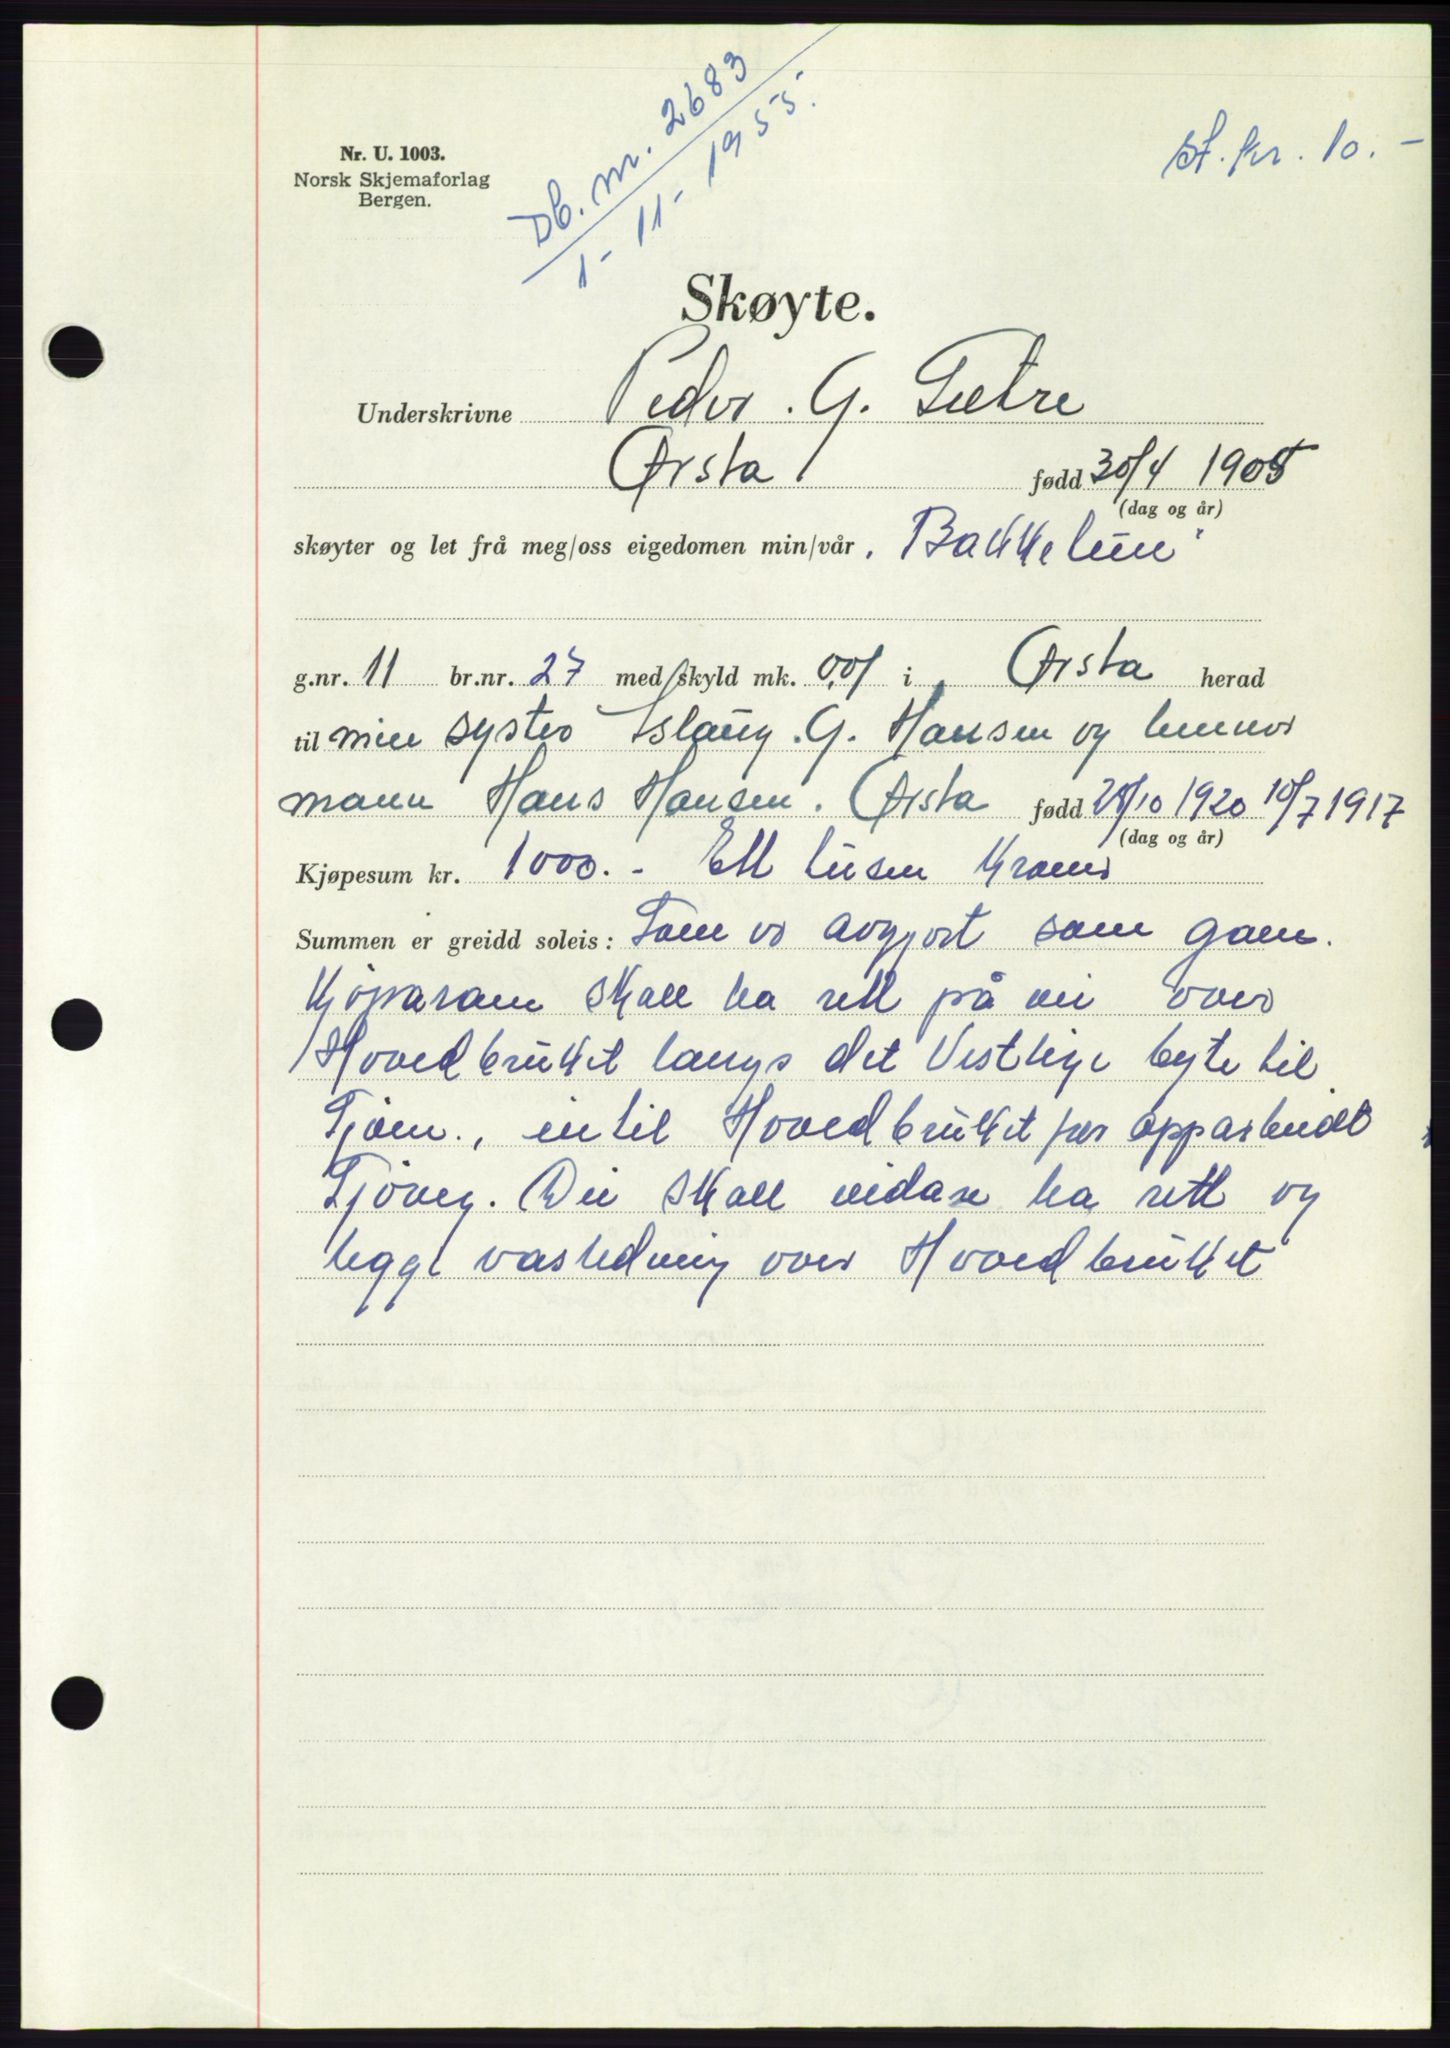 Db. nr. 2683
1-11-1955.
st. kr. 10.-
Nr. U. 1003.
Norsk Skjemaforlag
Bergen.
Skøyte.
Underskrivne Peder. G. Sætre
Ørsta fødd 30/4 1905
(dag og år)
skøyter og let frå meg/oss eigedomen min/vår „Bakketun"
g.nr. 11 br.nr. 27 med skyld mk. 0,01 i Ørsta herad
til min syster Aslaug. G. Hansen og hennar
mann Hans Hansen. Ørsta fødd 28/10 1920 10/7 1917
(dag og år)
Kjøpesum kr. 1000.- Ett tusen kroner
Summen er greidd soleis: Som er avgjort som gave.
Kjøparane skall ha rett på vei over
Hovedbruket langs det Vestlige byte til
Sjøen., intil Hovedbruket får opparbeidt
Sjøveg. Dei skall vidare ha rett og
legge vasledning over Hovedbruket